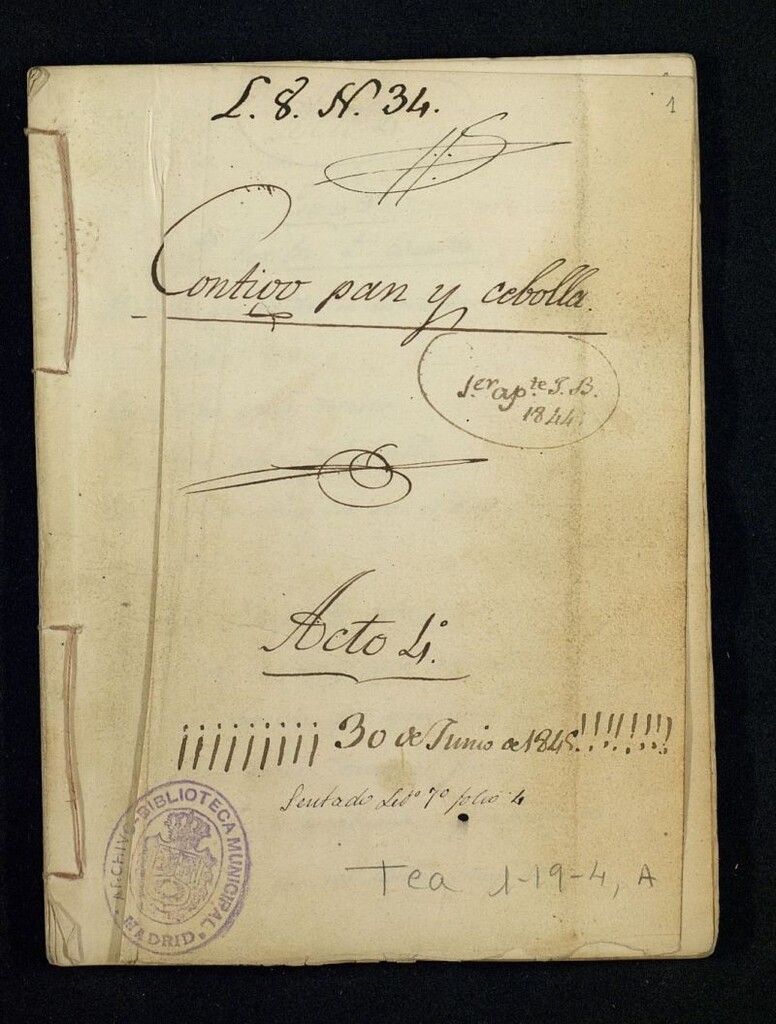 L. 8. N. 34.
1
Contigo pan y cebolla.
1.er ap.te J. B.
1844
Acto 4.º
¡¡¡¡¡¡¡¡¡ 30 de Junio de 1845!!!!!!!!
Sentado Lib.º 7º folio 4
ARCHIVO-BIBLIOTECA MUNICIPAL
MADRID
Tea 1-19-4, A